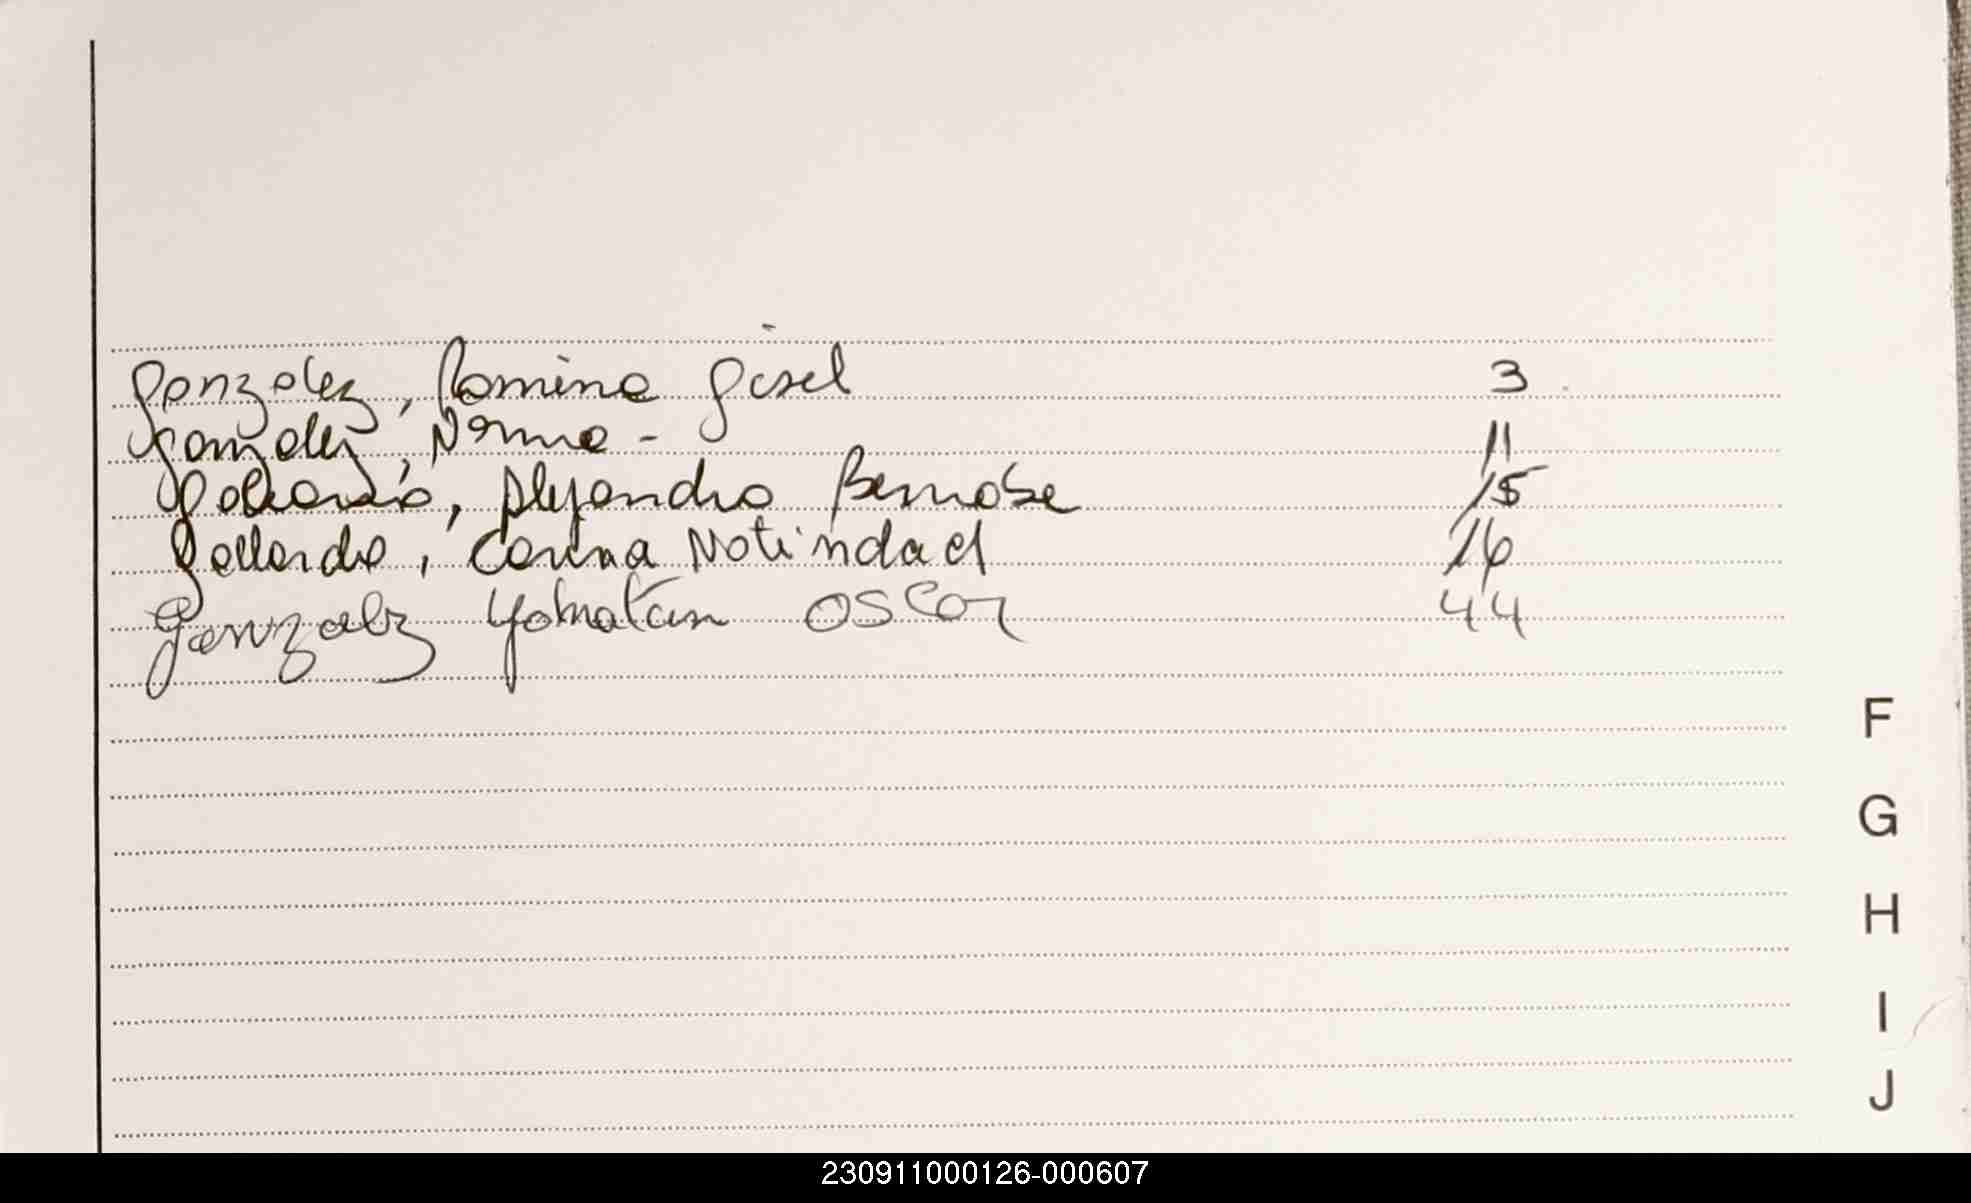 Gonzalez, Romina Gisel 3
Gonzalez, Norma - 11
Alejandro Bernabe 15
Gallardo, Corina Natividad 16
Gonzalez Yohatan Oscar 44
F
G
H
I
J
230911000126-000607